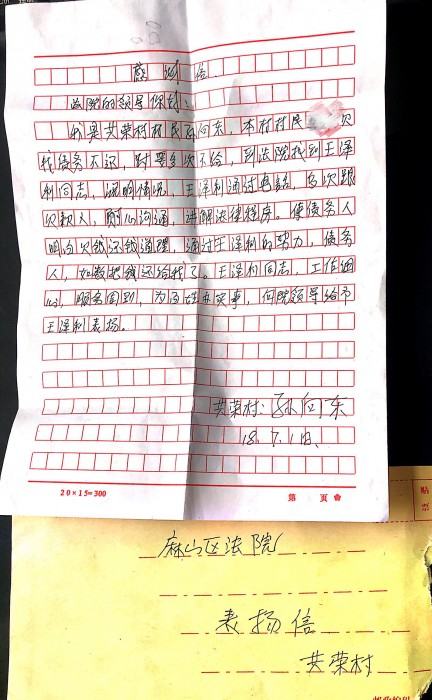 感谢信
法院的领导你好：
我是共荣村村民孙向东，本村村民 欠
我债务不还，对要多次不给，到法院找到王泽
利同志，说明情况，王泽利通过电话，多次跟
欠款人，耐心沟通，讲解法律程序。使债务人
明白欠钱还钱道理，通过王泽利的努力，债务
人，如数把钱还给我了。王泽利同志，工作细
心，服务周到，为百姓办实事，向院领导给予
王泽利表扬。
共荣村：孙向东
18.7.1日、
20×15=300
第 页
贴
票
麻山区法院
表扬信
共荣村